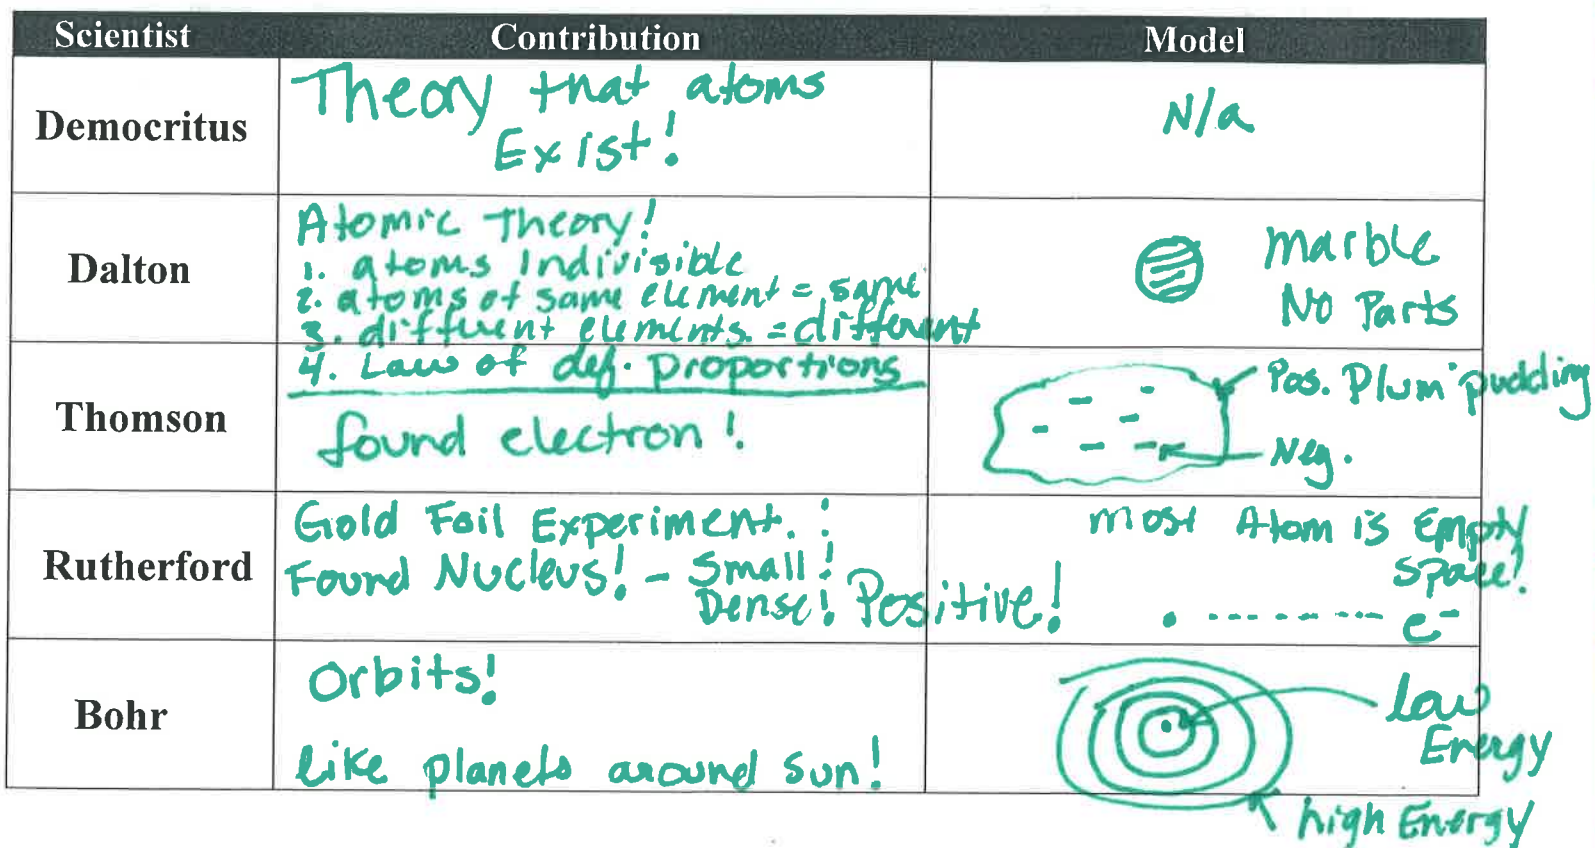 Scientist Contribution Model
Democritus
Theory that atoms
Exist!
N/a
Dalton
Atomic Theory!
1. atoms Indivisible
2. atoms of same element = same
3. different elements. = different
4. Law of def. proportions
marble
No Parts
Thomson
found electron!
Pos. Plum pudding
Neg.
Rutherford
Gold Foil Experiment. :
Found Nucleus! - Small!
Dense! Positive!
most Atom is Empty
space!
e-
Bohr
Orbits!
like planets around sun!
low
Energy
high Energy